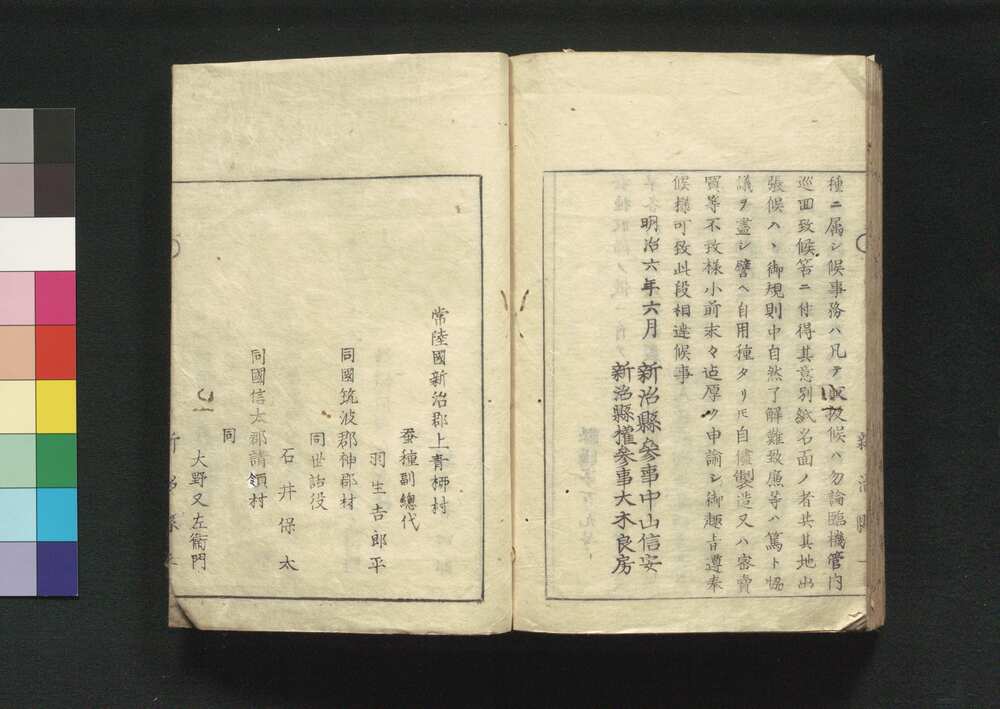 種ニ属シ候事務ハ凡テ取扱候ハ勿論臨機管内
巡回致候筈ニ付得其意別紙名面ノ者共其地出
張候ハヽ御規則中自然了解難致廉等ハ篤ト協
議ヲ盡シ譬ヘ自用種タリ𪜈自儘製造又ハ密賣
買等不致様小前末々迠厚ク申諭シ御趣旨遵奉
候様可致此段相達候事
明治六年六月 新治縣參事中山信安
新治縣權參事大木良房
常陸國新治郡上青栁村
蚕種副總代
羽生吉郎平
同國筑波郡神郡村
同世話役
石井保太
同國信太郡請領村
同
大野又左衛門